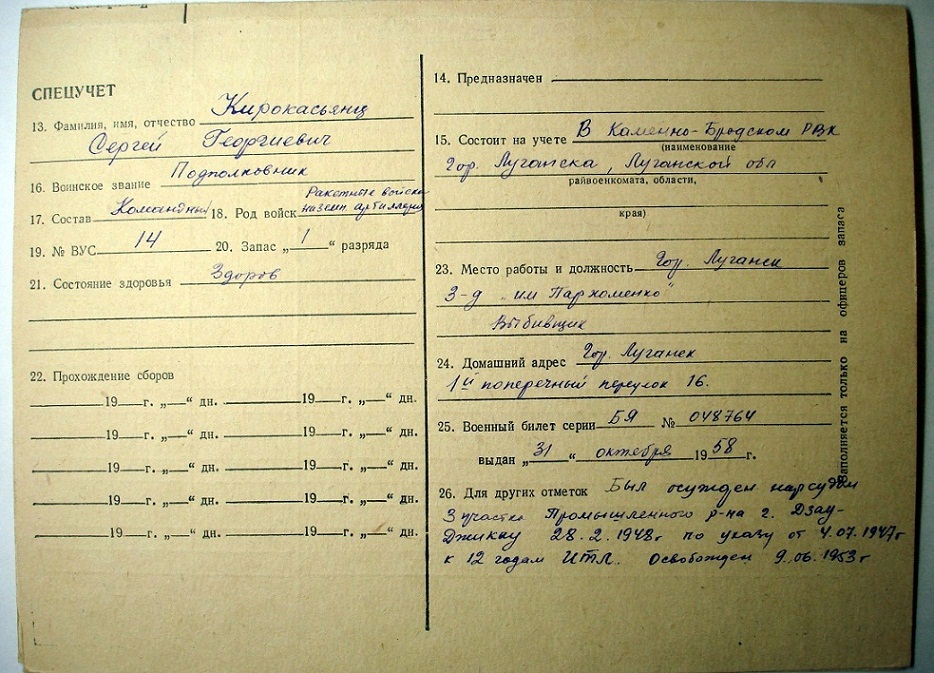 СПЕЦУЧЕТ
13. Фамилия, имя, отчество Кирокасьянц
Сергей Георгиевич
16. Воинское звание Подполковник
17. Состав Командный 18. Род войск Ракетные войска
наземн. артиллерия
19. № ВУС 14 20. Запас „1“ разряда
21. Состояние здоровья Здоров
22. Прохождение сборов
19 г. „ “ дн. 19 г. „ “ дн.
19 г. „ “ дн. 19 г. „ “ дн.
19 г. „ “ дн. 19 г. „ “ дн.
19 г. „ “ дн. 19 г. „ “ дн.
19 г. „ “ дн. 19 г. „ “ дн.
14. Предназначен
15. Состоит на учете В Каменно-Бродском РВК
(наименование
гор. Луганска, Луганской обл
райвоенкомата, области,
края)
23. Место работы и должность гор. Луганск
З-д „им Пархоменко“
Выбивщик
24. Домашний адрес гор. Луганск
1й поперечный переулок 16.
25. Военный билет серии БЯ № 048764
выдан „31“ октября 1958 г.
26. Для других отметок Был осужден нарсудом
3 участка Промышленного р-на г. Дзау-
Джикау 28.2.1948г по указу от 4.07.1947г
к 12 годам ИТЛ. Освобожден 9.06.1953г
Заполняется только на офицеров запаса